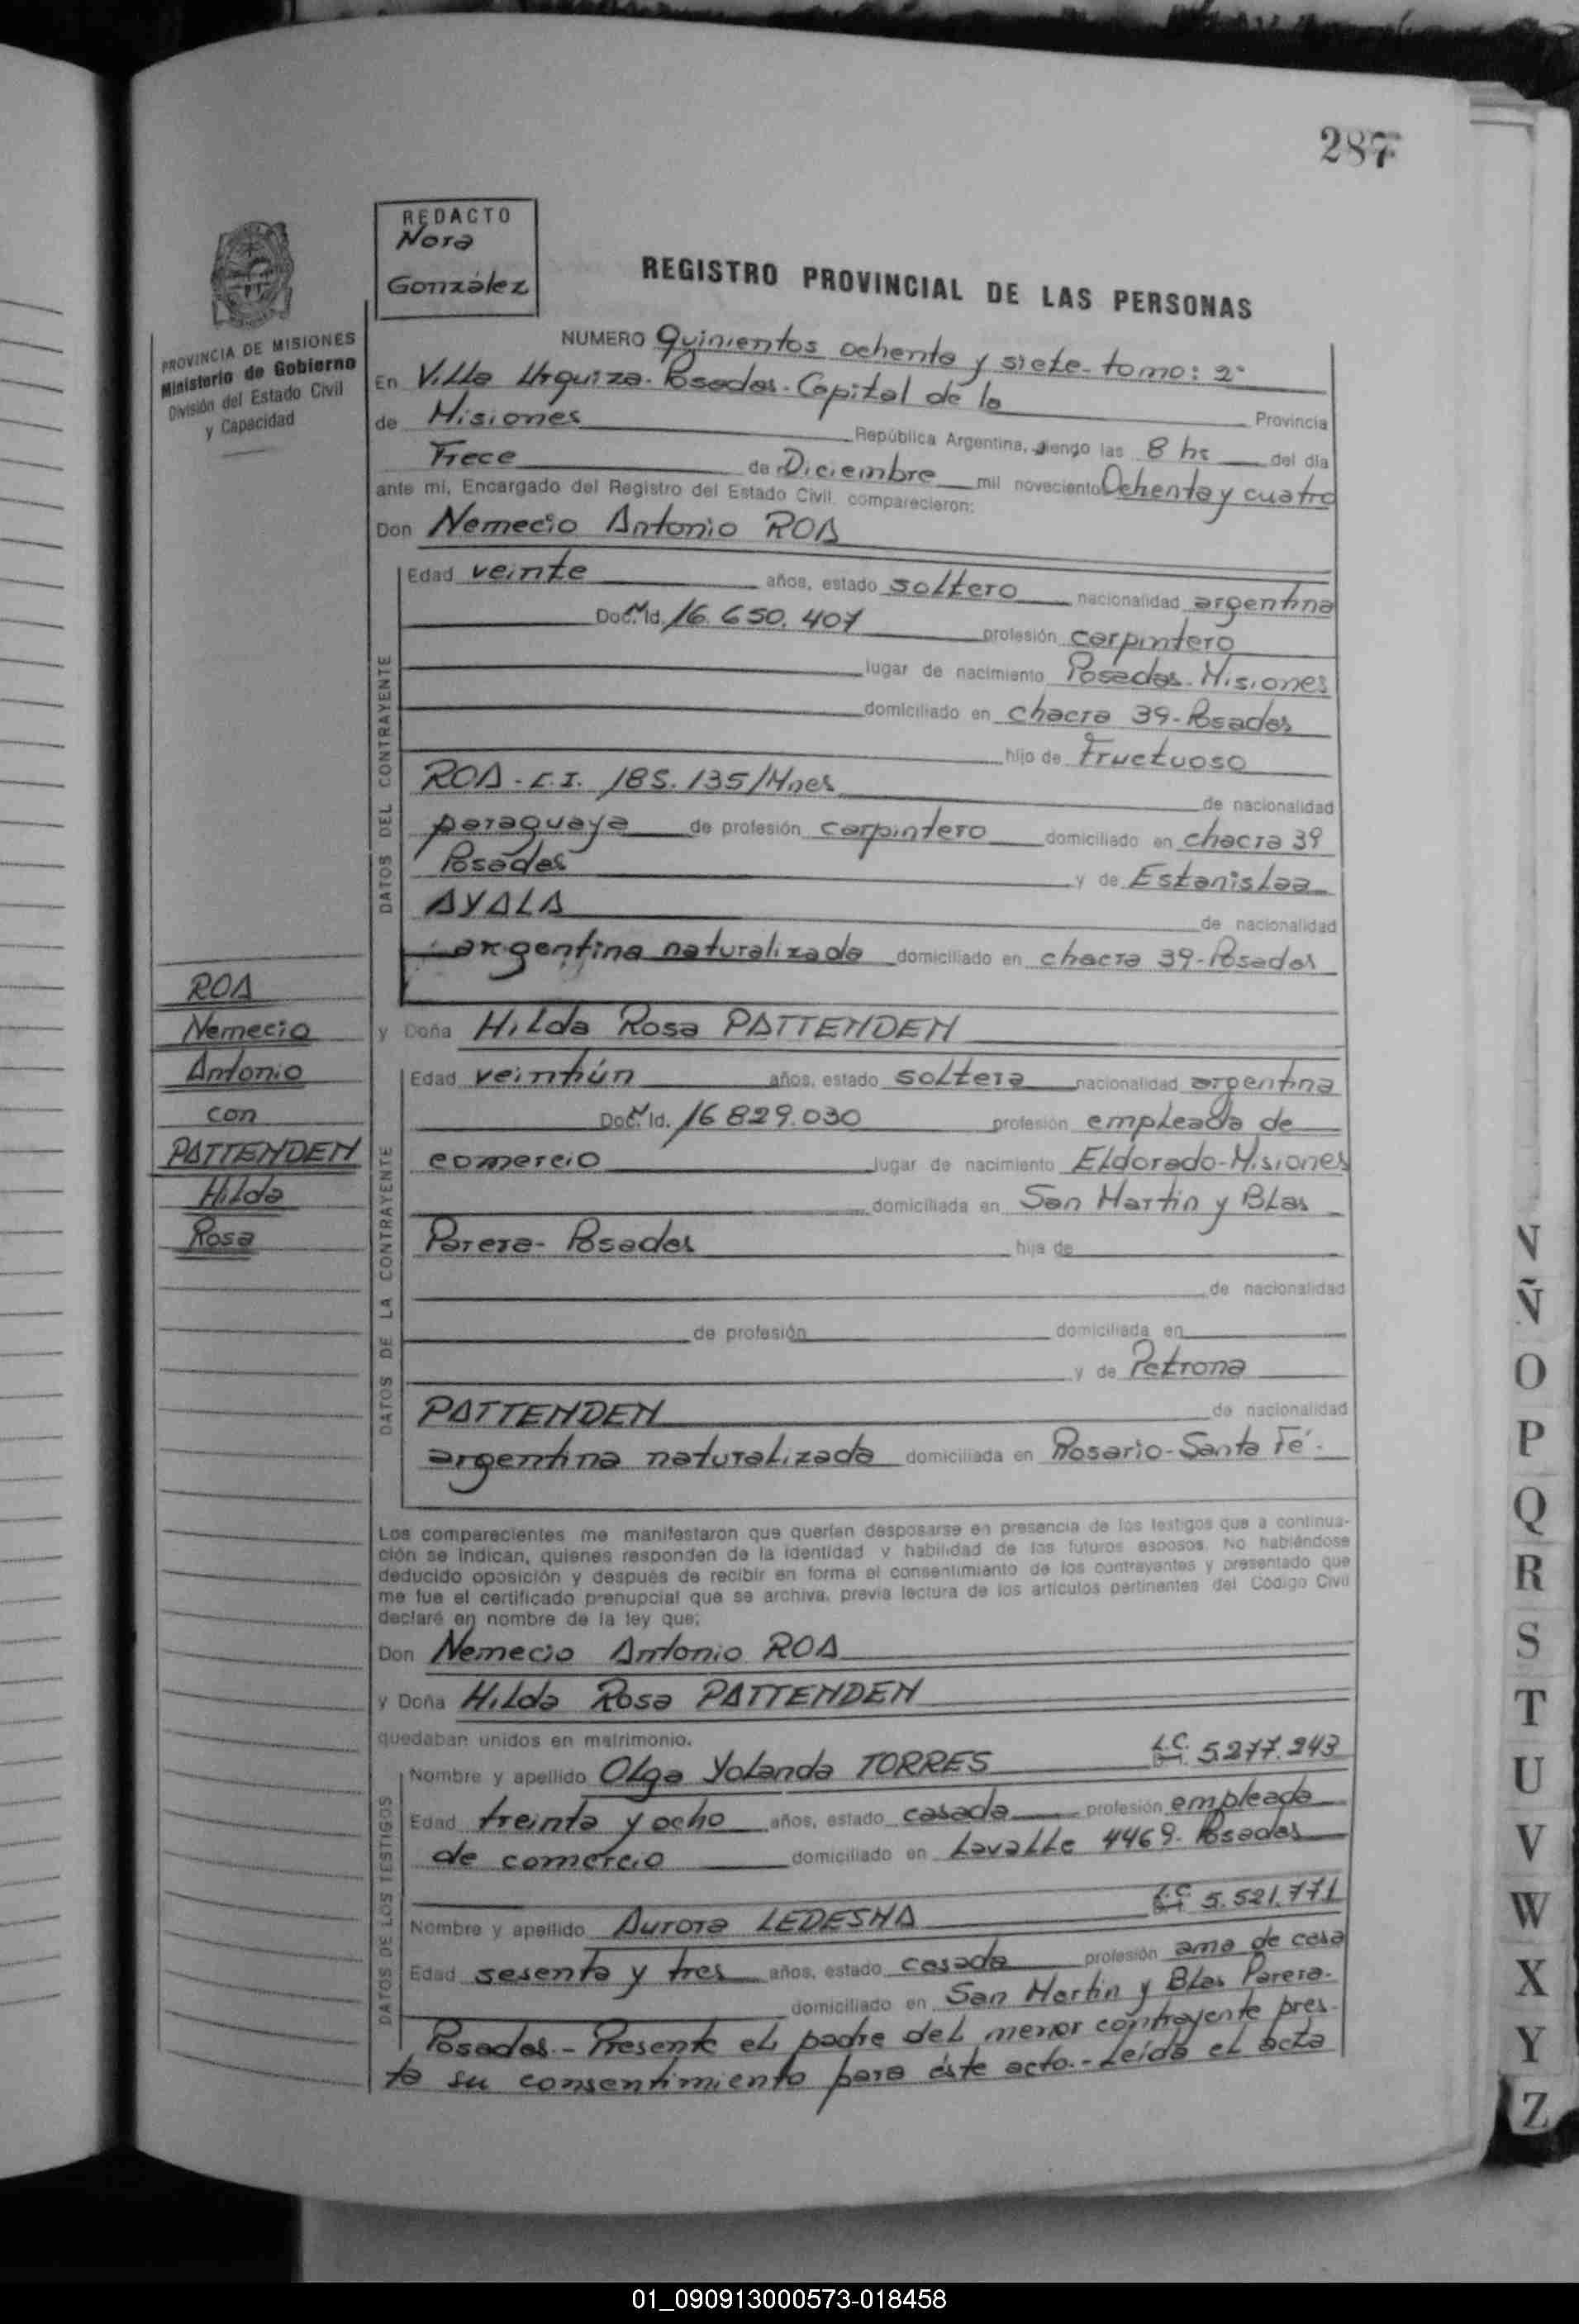 287
REDACTO
Nora
González
REGISTRO PROVINCIAL DE LAS PERSONAS
PROVINCIA DE MISIONES
Ministerio de Gobierno
División del Estado Civil
y Capacidad
NUMERO Quinientos ochenta y siete - tomo: 2º
En Villa Urquiza - Posadas - Capital de la Provincia
de Misiones República Argentina, siendo las 8 hs del día
Trece de Diciembre mil novecientos Ochenta y cuatro
ante mi, Encargado del Registro del Estado Civil, comparecieron:
Don Nemecio Antonio ROA
DATOS DEL CONTRAYENTE
Edad veinte años, estado soltero nacionalidad argentina
Doc. N. Id. 16.650.407 profesión carpintero
lugar de nacimiento Posadas - Misiones
domiciliado en chacra 39 - Posadas
hijo de Fructuoso
ROA - C.I. 185.135/Mnes de nacionalidad
paraguaya de profesión carpintero domiciliado en chacra 39
Posadas y de Estanislaa
AYALA de nacionalidad
argentina naturalizada domiciliado en chacra 39 - Posadas
ROA
Nemecio
Antonio
con
PATTENDEN
Hilda
Rosa
y Doña Hilda Rosa PATTENDEN
DATOS DE LA CONTRAYENTE
Edad veintiún años, estado soltera nacionalidad argentina
Doc. N. Id. 16829.030 profesión empleada de
comercio lugar de nacimiento Eldorado - Misiones
domiciliada en San Martin y Blas
Parera - Posadas hija de
de nacionalidad
de profesión domiciliada en
y de Petrona
PATTENDEN de nacionalidad
argentina naturalizada domiciliada en Rosario - Santa Fé.
Los comparecientes me manifestaron que querían desposarse en presencia de los testigos que a continua-
ción se indican, quienes responden de la identidad y habilidad de los futuros esposos. No habiéndose
deducido oposición y después de recibir en forma el consentimiento de los contrayentes y presentado que
me fue el certificado prenupcial que se archiva, previa lectura de los artículos pertinentes del Código Civil
declaré en nombre de la ley que:
Don Nemecio Antonio ROA
y Doña Hilda Rosa PATTENDEN
quedaban unidos en matrimonio.
DATOS DE LOS TESTIGOS
Nombre y apellido Olga Yolanda TORRES L.C. 5.277.243
Edad treinta y ocho años, estado casada profesión empleada
de comercio domiciliado en Lavalle 4469 - Posadas
Nombre y apellido Aurora LEDESMA L.C. 5.521.771
Edad sesenta y tres años, estado casada profesión ama de casa
domiciliado en San Martin y Blas Parera -
Posadas. - Presente el padre del menor contrayente pres-
ta su consentimiento para éste acto. - Leída el acta
N
Ñ
O
P
Q
R
S
T
U
V
W
X
Y
Z
01_090913000573-018458